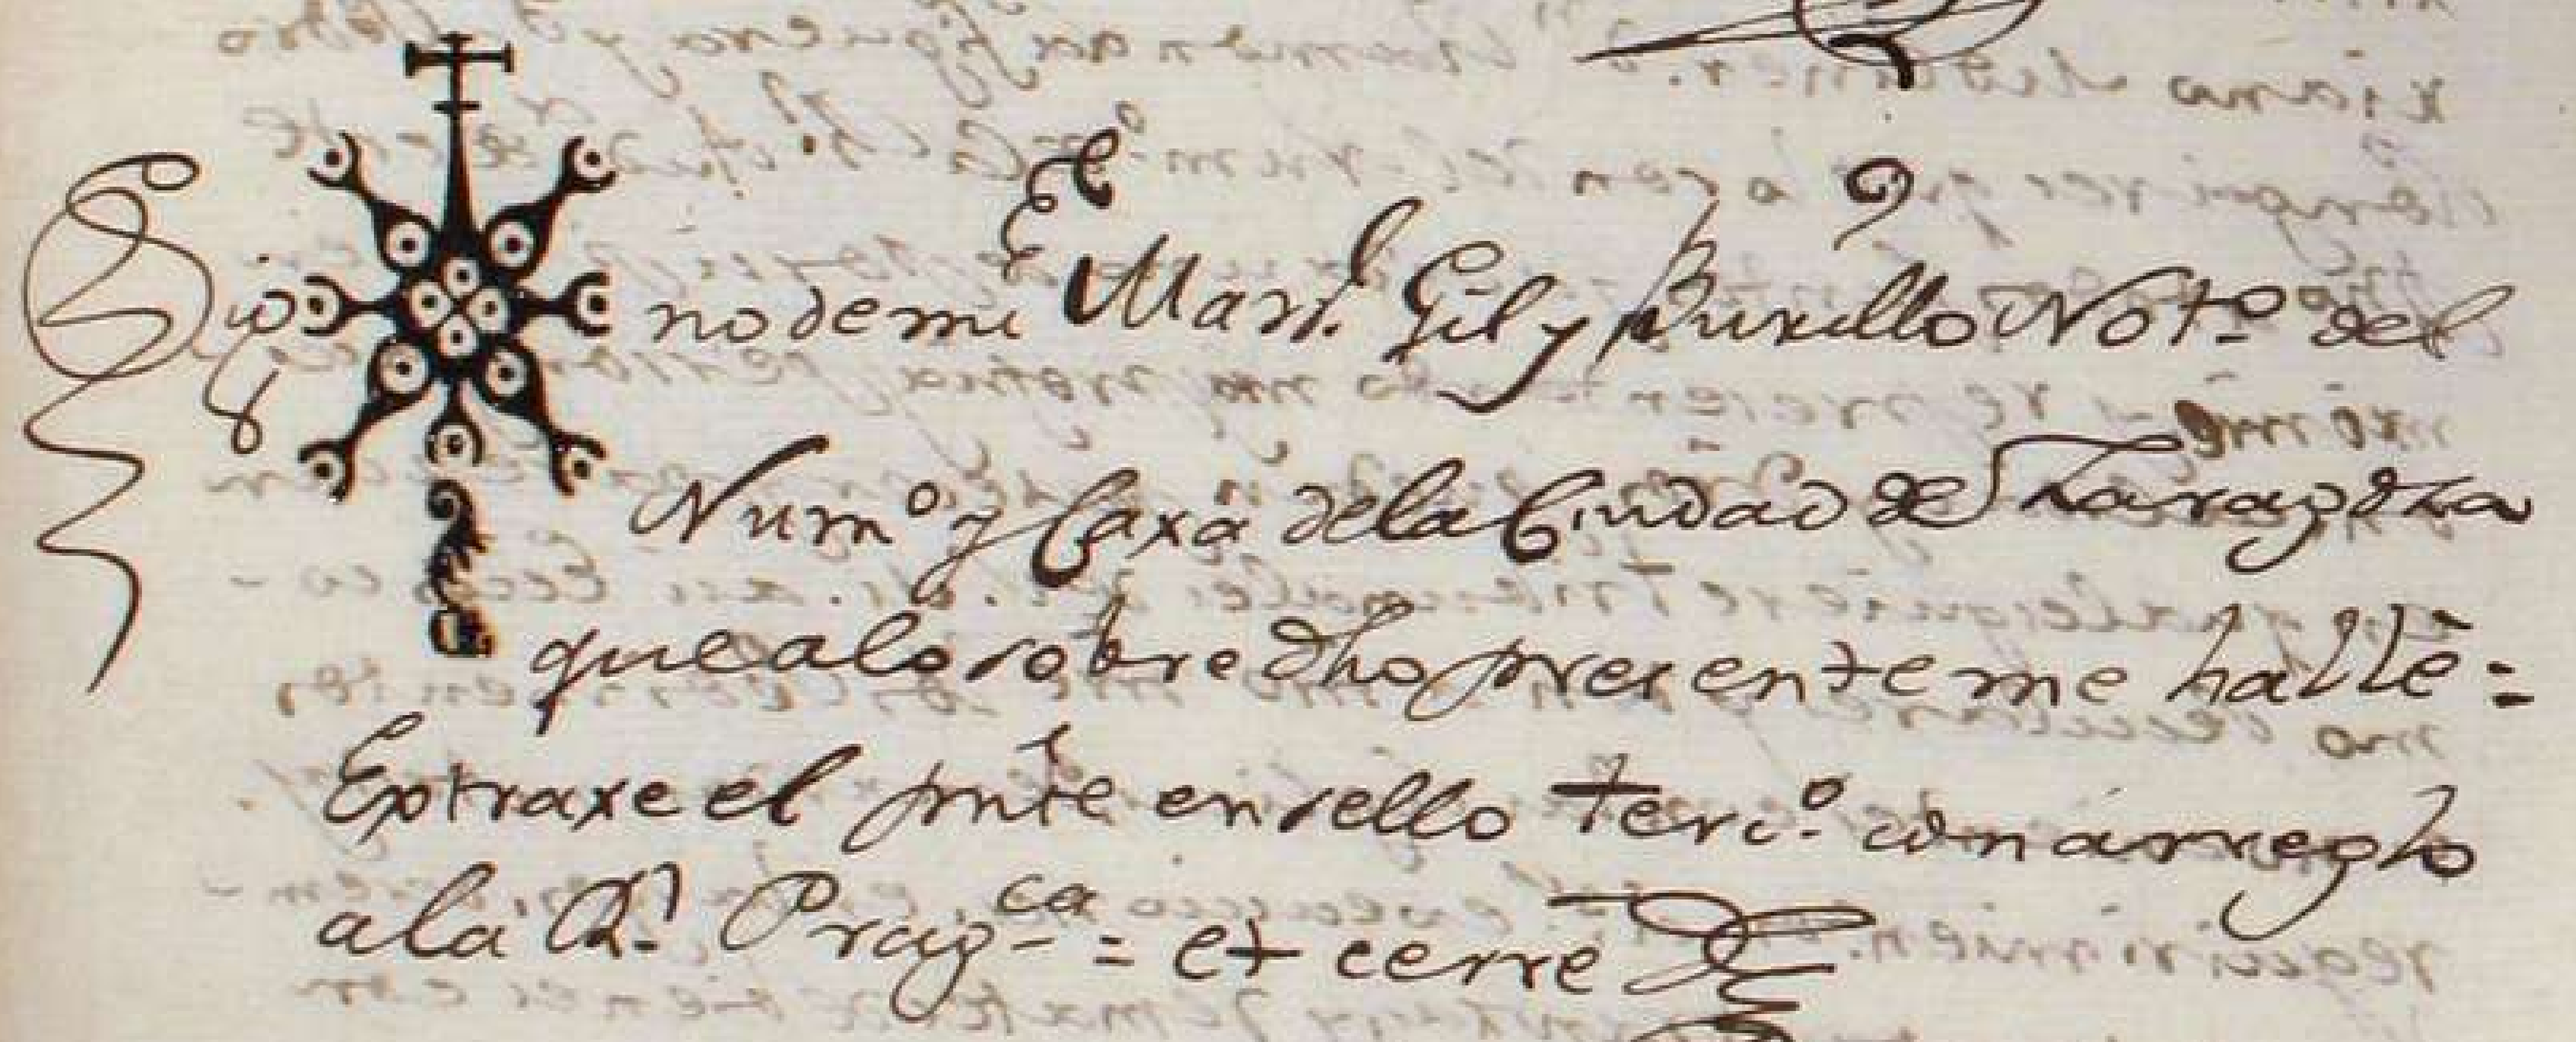 Sig no de mi Man.l Gil y Burillo Not.o del
Num.o y Caxa de la Ciudad de Zaragoza
que a lo sobre dho presente me hallè =
Extraxe el pnte en sello terc.o con arreglo
a la R.l Prag.ca = et cerre